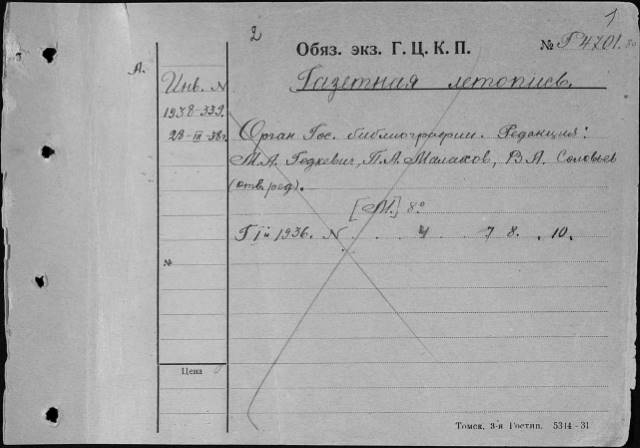 1
2
Обяз. экз. Г. Ц. К. П. № Г 4701.
А.
Инв. N
1938-339
23-III-38г.
Газетная летопись.
Орган Гос. библиографии. Редакция:
М.А. Годкевич, П.А. Малахов, В.А. Соловьев
(отв. ред).
[М.] 8°
Г I й 1936. N . . . 4 7 8 . 10.
№
Цена
Томск. 3-я Гостип. 5314-31